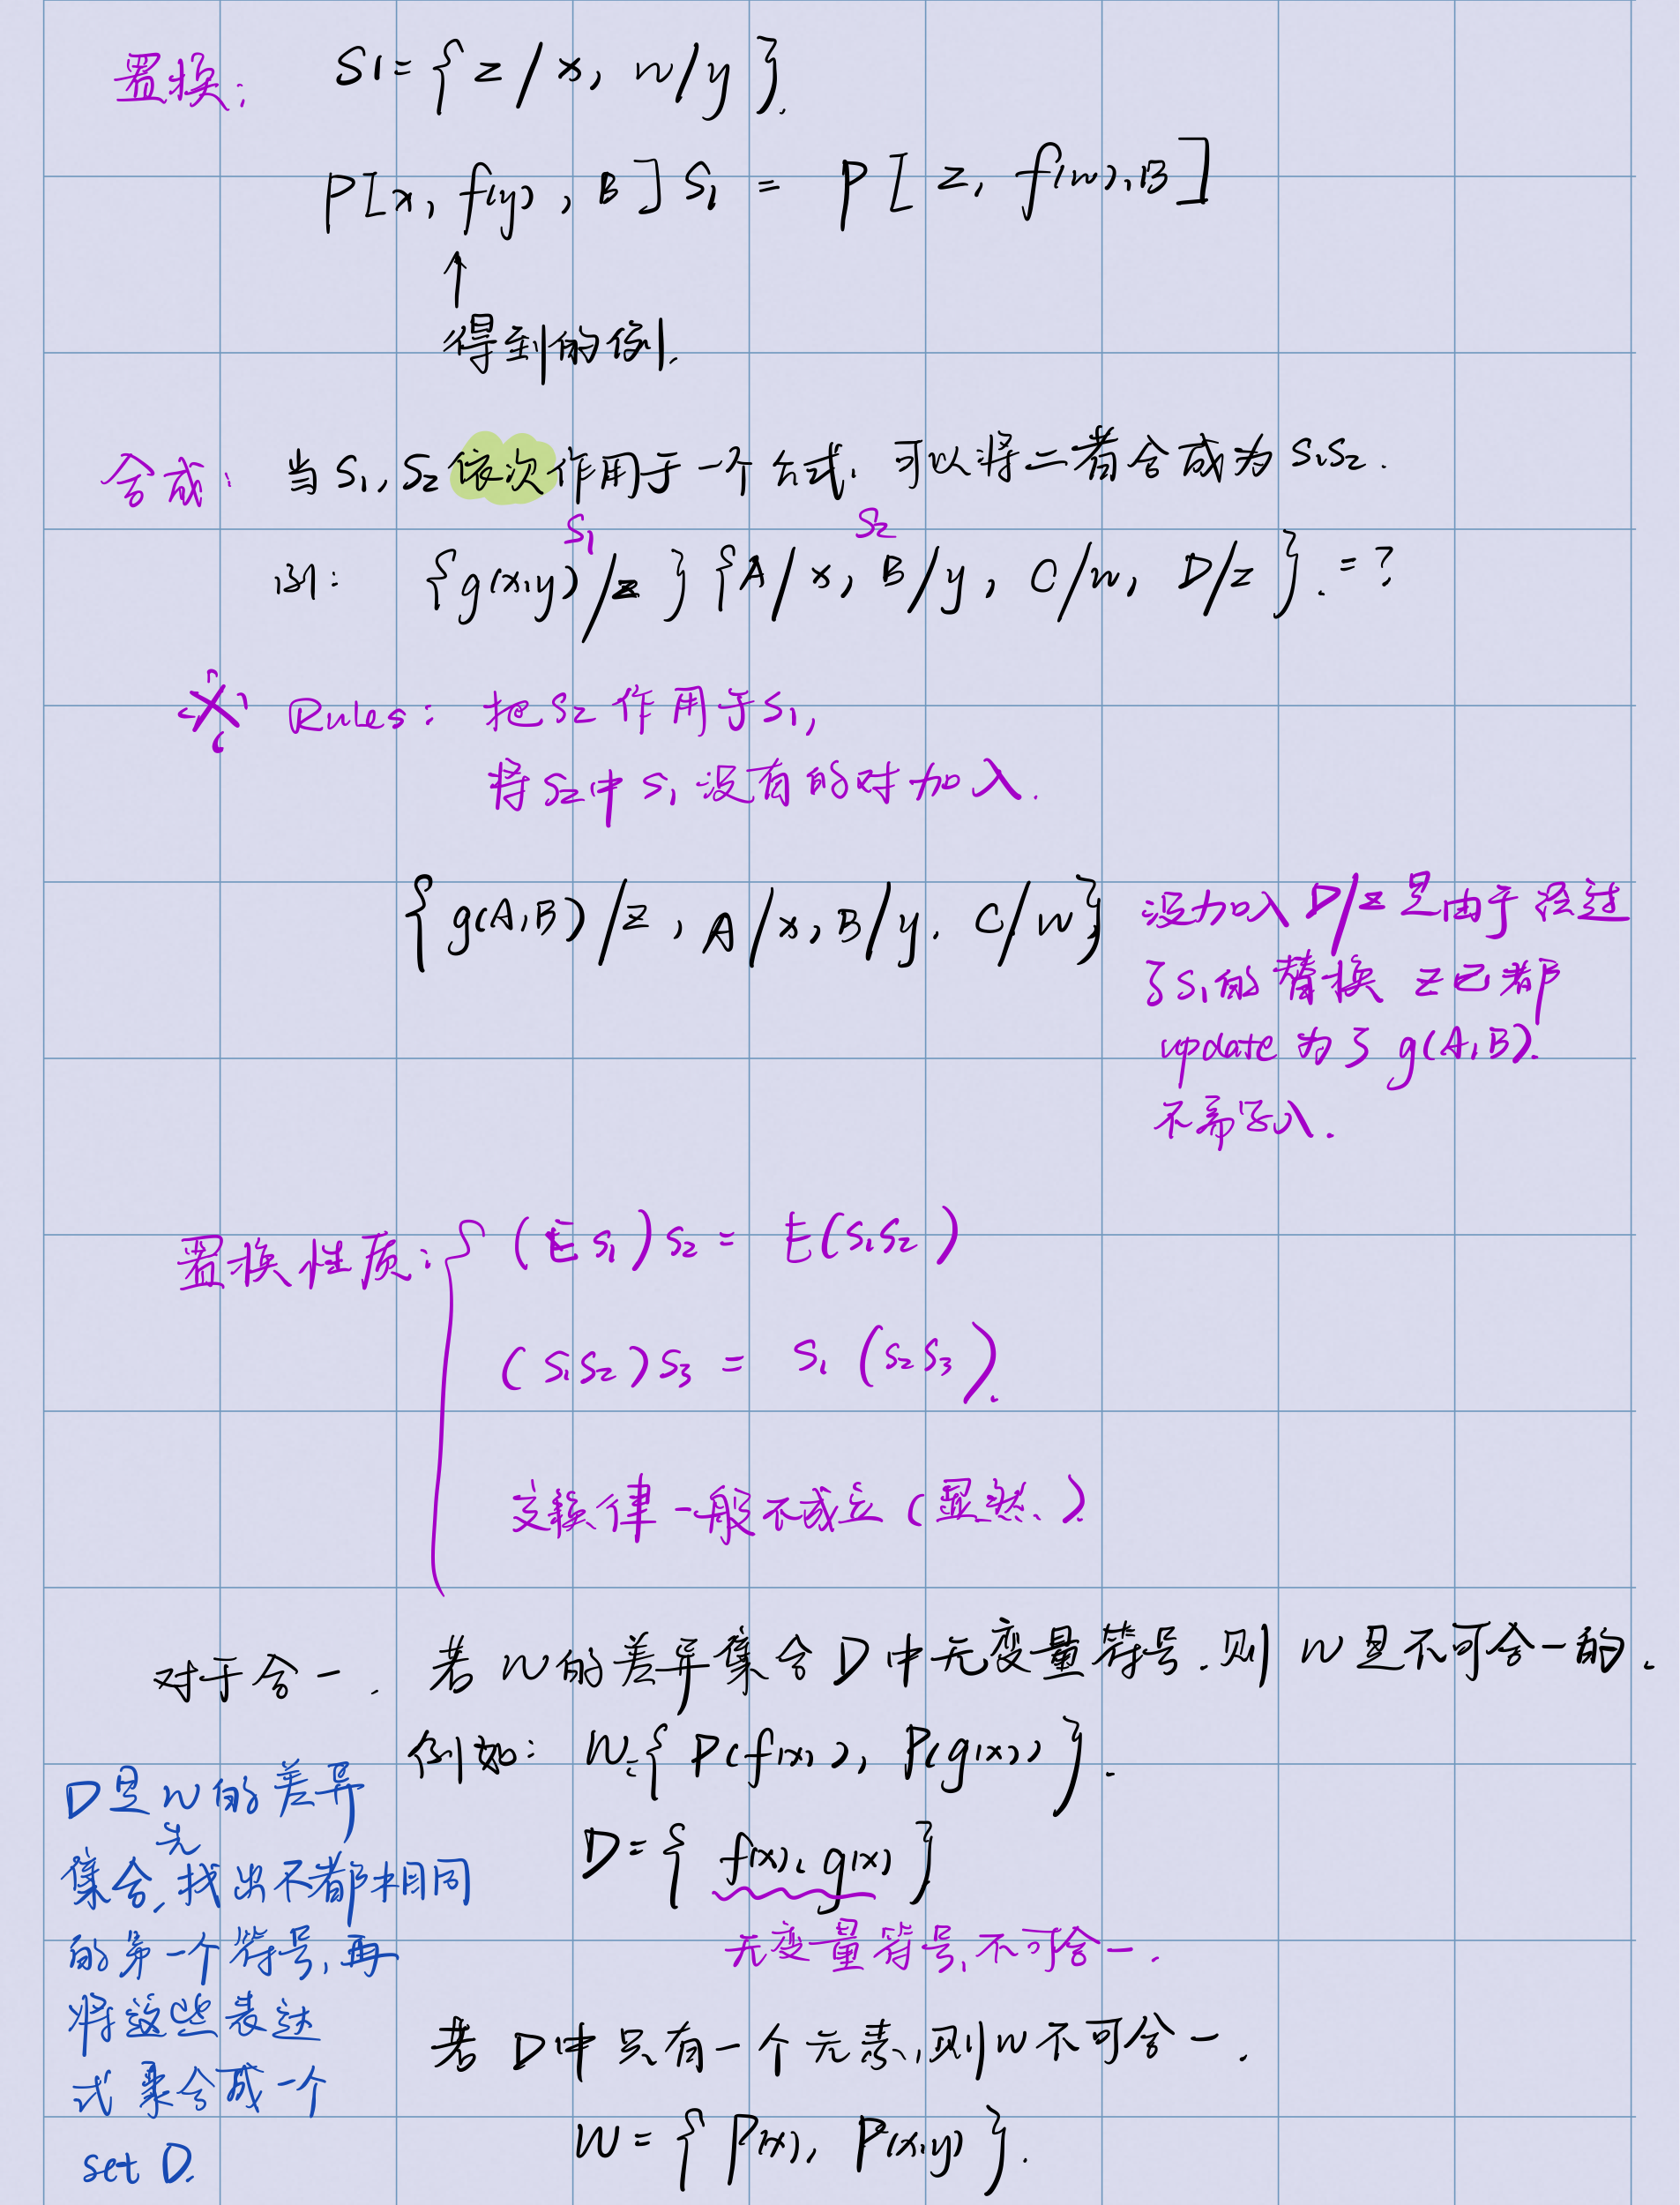 置换: S1={z/x, w/y}.
P[x, f(y), B]S1 = P[z, f(w), B]
↑
得到的例.
合成: 当S1,S2依次作用于一个公式, 可以将二者合成为S1S2.
S1 S2
例: {g(x,y)/z}{A/x, B/y, C/w, D/z}. =?
※ Rules: 把S2作用于S1,
将S2中S1没有的对加入.
{g(A,B)/z, A/x, B/y, C/w}
没加入D/z是由于经过
了S1的替换 z已都
update为了g(A,B).
不需写入.
置换性质:
(ES1)S2 = E(S1S2)
(S1S2)S3 = S1(S2S3).
交换律一般不成立(显然.)
对于合一. 若W的差异集合D中无变量符号.则W是不可合一的.
例如: W={P(f(x)), P(g(x))}.
D={f(x), g(x)}
无变量符号,不可合一.
D是W的差异
集合,先找出不都相同
的第一个符号,再
将这些表达
式聚合成一个
set D.
若D中只有一个元素,则W不可合一.
W={P(x), P(x,y)}.